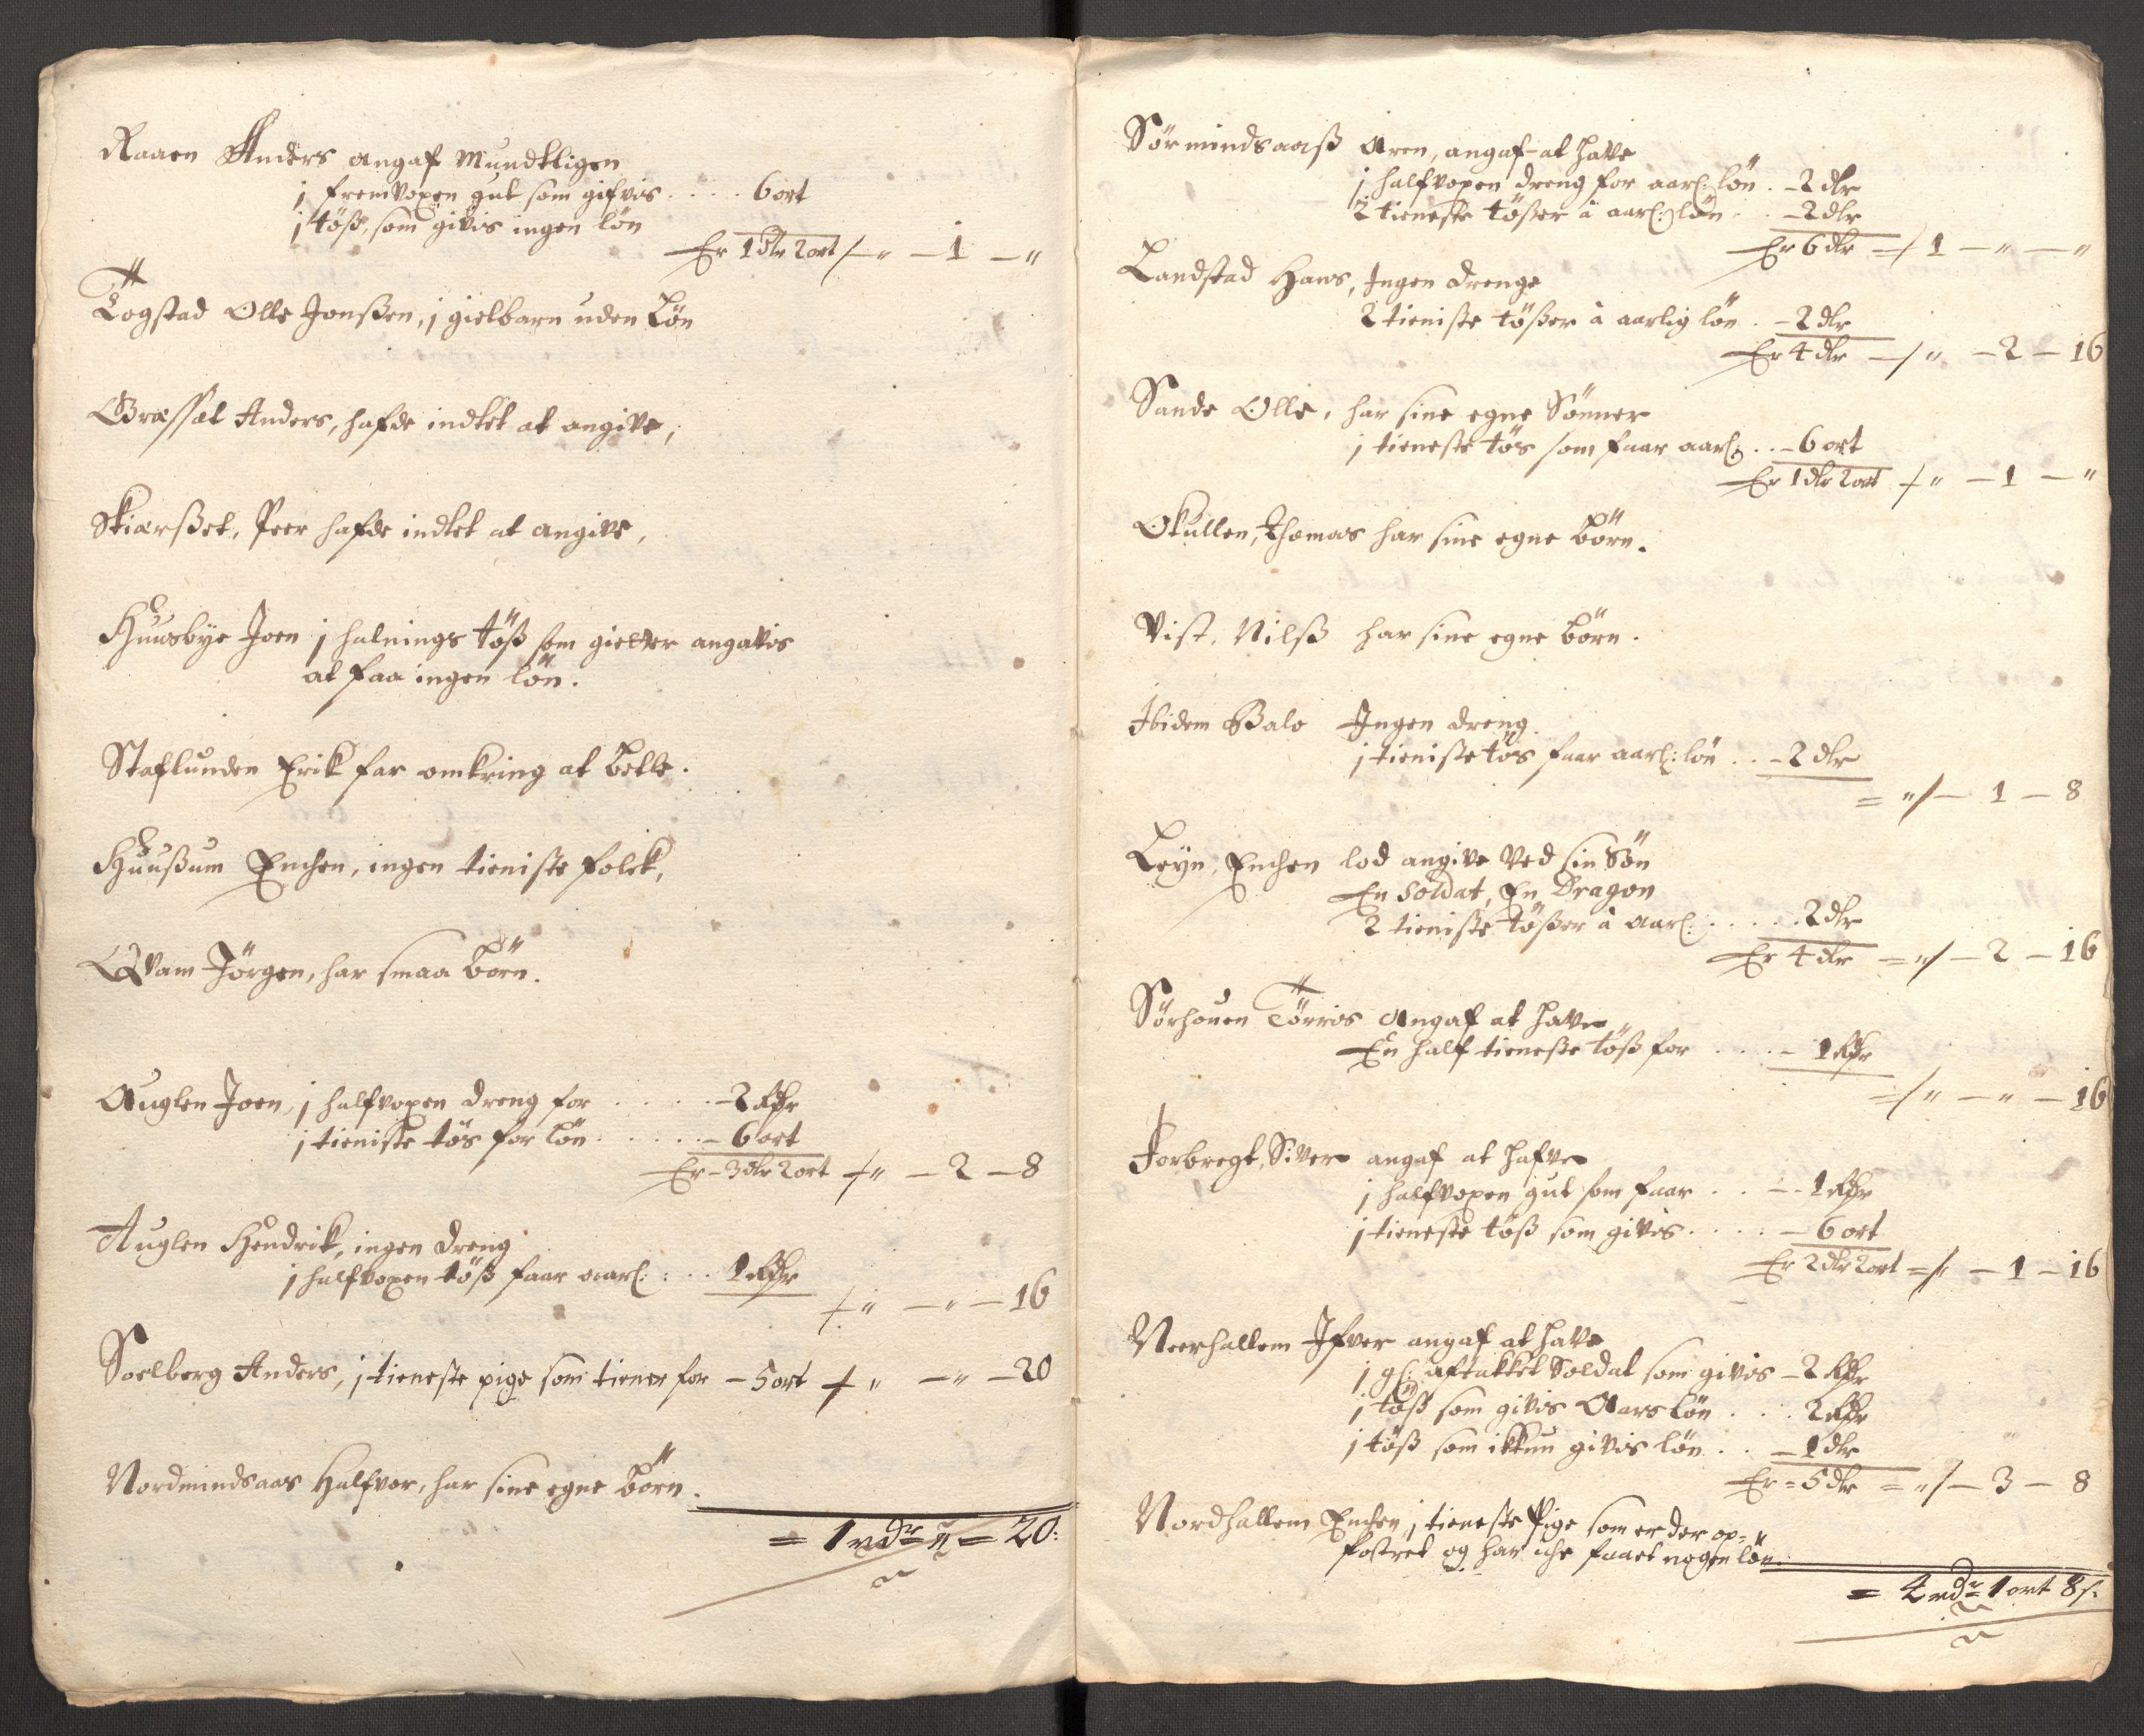 Raaen Anders angaf Mundtligen
j fremvoxen gut som gifvis .... 6 ort
j töß, som givis ingen lön
Er 1 dlr 2 ort /-" - 1 - "
Togstad Olle Jonßen, j gielbarn uden Lön
Græsset Anders, hafde indtet at angive,
Skiærßet, Peer hafde indtet at angive,
Huusbye Joen j halnings töß som gietter angavis
at faa ingen lön.
Staflunden Erik far omkring at betle.
Huußum Enchen, ingen tieniste folck,
Qvam Jörgen, har smaa börn.
Auglen Joen, j halfvoxen dreng for ..... - 2 Rdr
j tieniste tös for lön ..... - 6 ort
Er - 3 dlr 2 ort /-" - 2 - 8
Auglen Hendrik, ingen dreng
j halfvoxen töß faar aarl: ... 1 Rdr
/-" - " - 16
Soelberg Anders, j tieneste pige som tiener for - 5 ort /-" - " - 20
Nordmindsaas Halfvor, har sine egne börn.
= 1 rdr " = 20:
Sörmindsaaß Aren, angaf at have
j halfvoxen dreng for aarl: lön . - 2 dlr
2 tieneste tößer à aarl: lön . . - 2 dlr
Er 6 dlr =/ 1 - " - "
Landstad Hans, Ingen drenge
2 tieniste tößer à aarlig lön . - 2 dlr
Er 4 dlr -/ " - 2 - 16
Sande Olle, har sine egne Sönner
j tieneste tös som faar aarl: . . - 6 ort
Er 1 dlr 2 ort /-" - 1 - "
Okullen, Thomas har sine egne börn.
Vist, Nilß har sine egne börn.
Ibidem Balo Ingen dreng
j tieniste tös faar aarl: lön . . - 2 dlr
= "/- 1 - 8
Leyn, Enchen lod angive ved sin Sön
En Soldat, En Dragon
2 tieniste tößer à aarl: ..... 2 dlr
Er 4 dlr = "/- 2 - 16
Sörhouen Törris angaf at have
En half tieneste töß for .... - 1 Rdr
=/ " - " - 16
Forbregt, Siver angaf at hafve
j halfvoxen gut som faar . . - 1 Rdr
j tieneste töß som givis ..... - 6 ort
Er 2 dlr 2 ort =/" - 1 - 16
Neerhallem Ifver angaf at have
j gl: aftakket Soldat som givis - 2 Rdr
j töß som givis Aars lön . . . 2 Rdr
j töß som ikkun givis lön . . - 1 dlr
Er = 5 dlr = "/- 3 - 8
Nordhallem Enchen j tieneste Pige som er der op=
fostret og har iche faaet nogen lön.
= 4 rdr 1 ort 8 s: